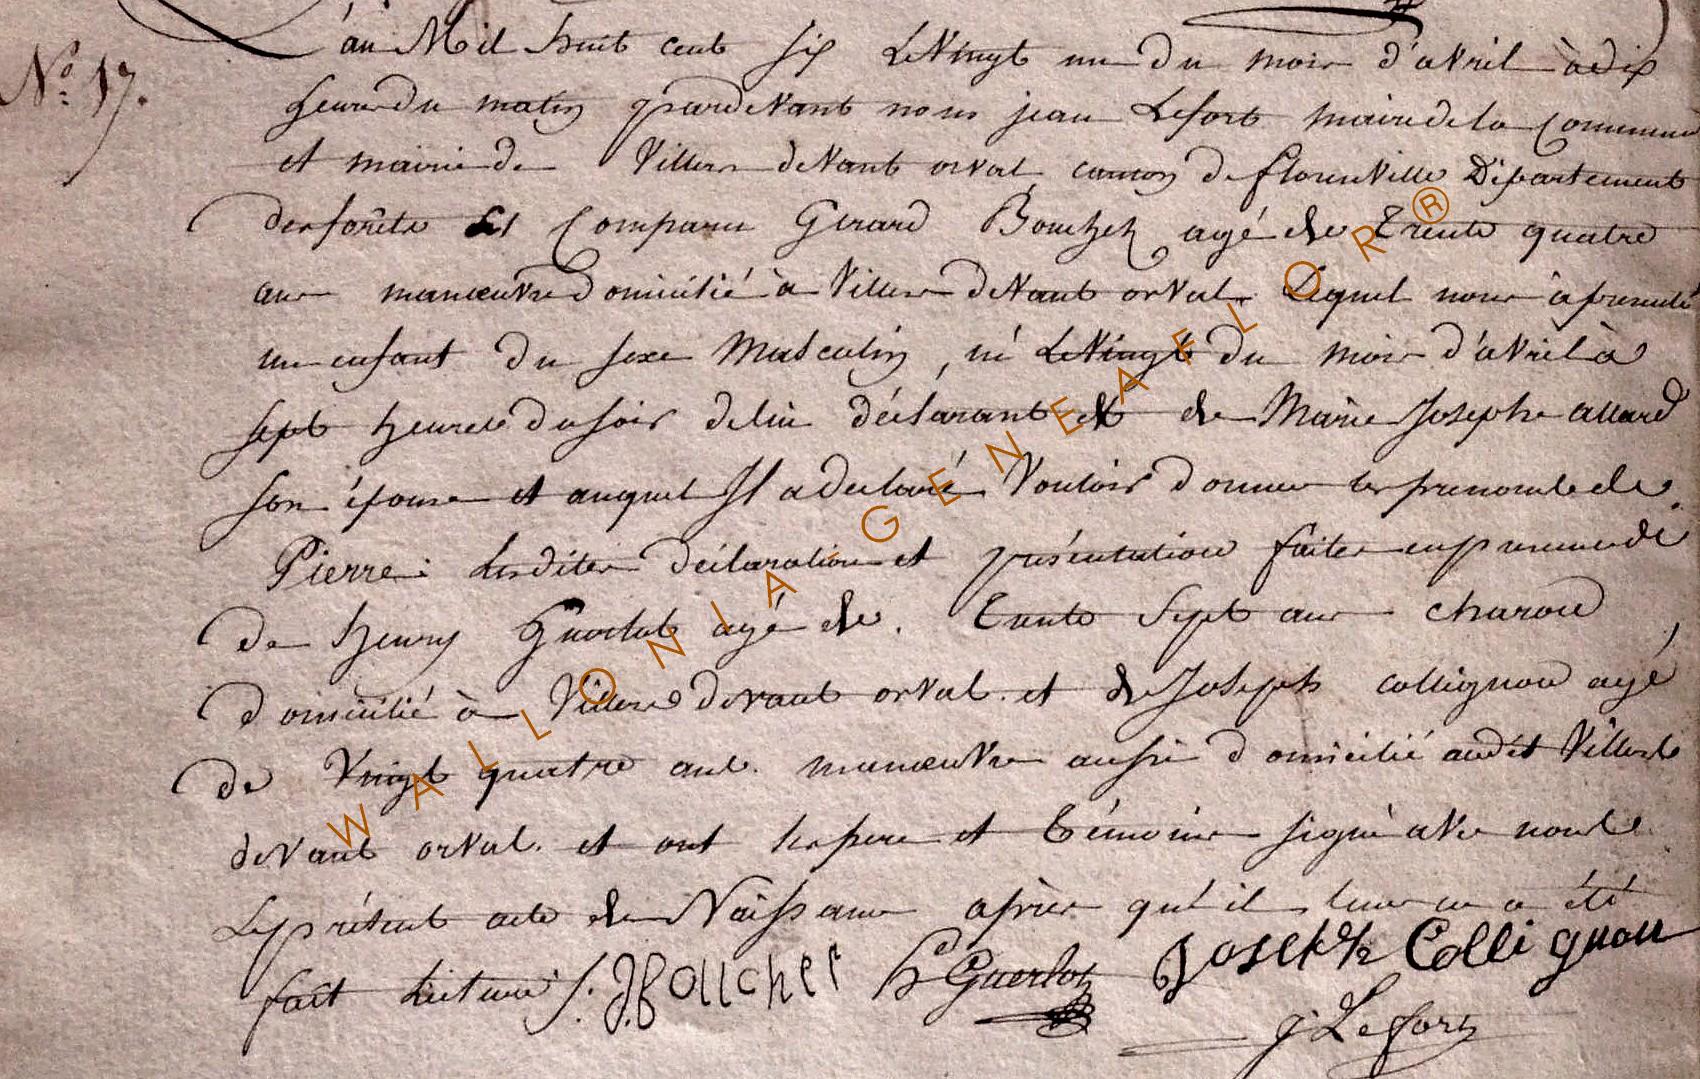 L'an Mil huit cent six Le Vingt un du mois d'avril à dix
N.o 17.
heures du matin pardevant nous jean Lefort maire de la Commune
et mairie de Villers devant orval canton de florenville Département
des forêts Est Comparu Gerard Bouchez agé de Trente quatre
ans manœuvre domicilié à Villers devant orval. Lequel nous à presenté
un enfant du sexe Masculin, né Le Vingt du mois d'avril à
sept heures du soir de lui déclarant et de Marie Josephe allard
son épouse et auquel Il a declaré Vouloir donner les prenoms de
Pierre. Lesdites déclaration et présentation faites en presence de
de henry Guerlot agé de. Trente Sept ans charon
domicilié à Villers devant orval. et de Joseph collignon agé
de Vingt quatre ans. manœuvre aussi domicilié audit Villers
devant orval. et ont les pere et témoins signé avec nous
Le présent acte de Naissance après qu'il leur en a été
fait lecture J. Bouchet h Guerlot Joseph Collignon
j. Lefort
WALLONIA-GENEAFLOR®